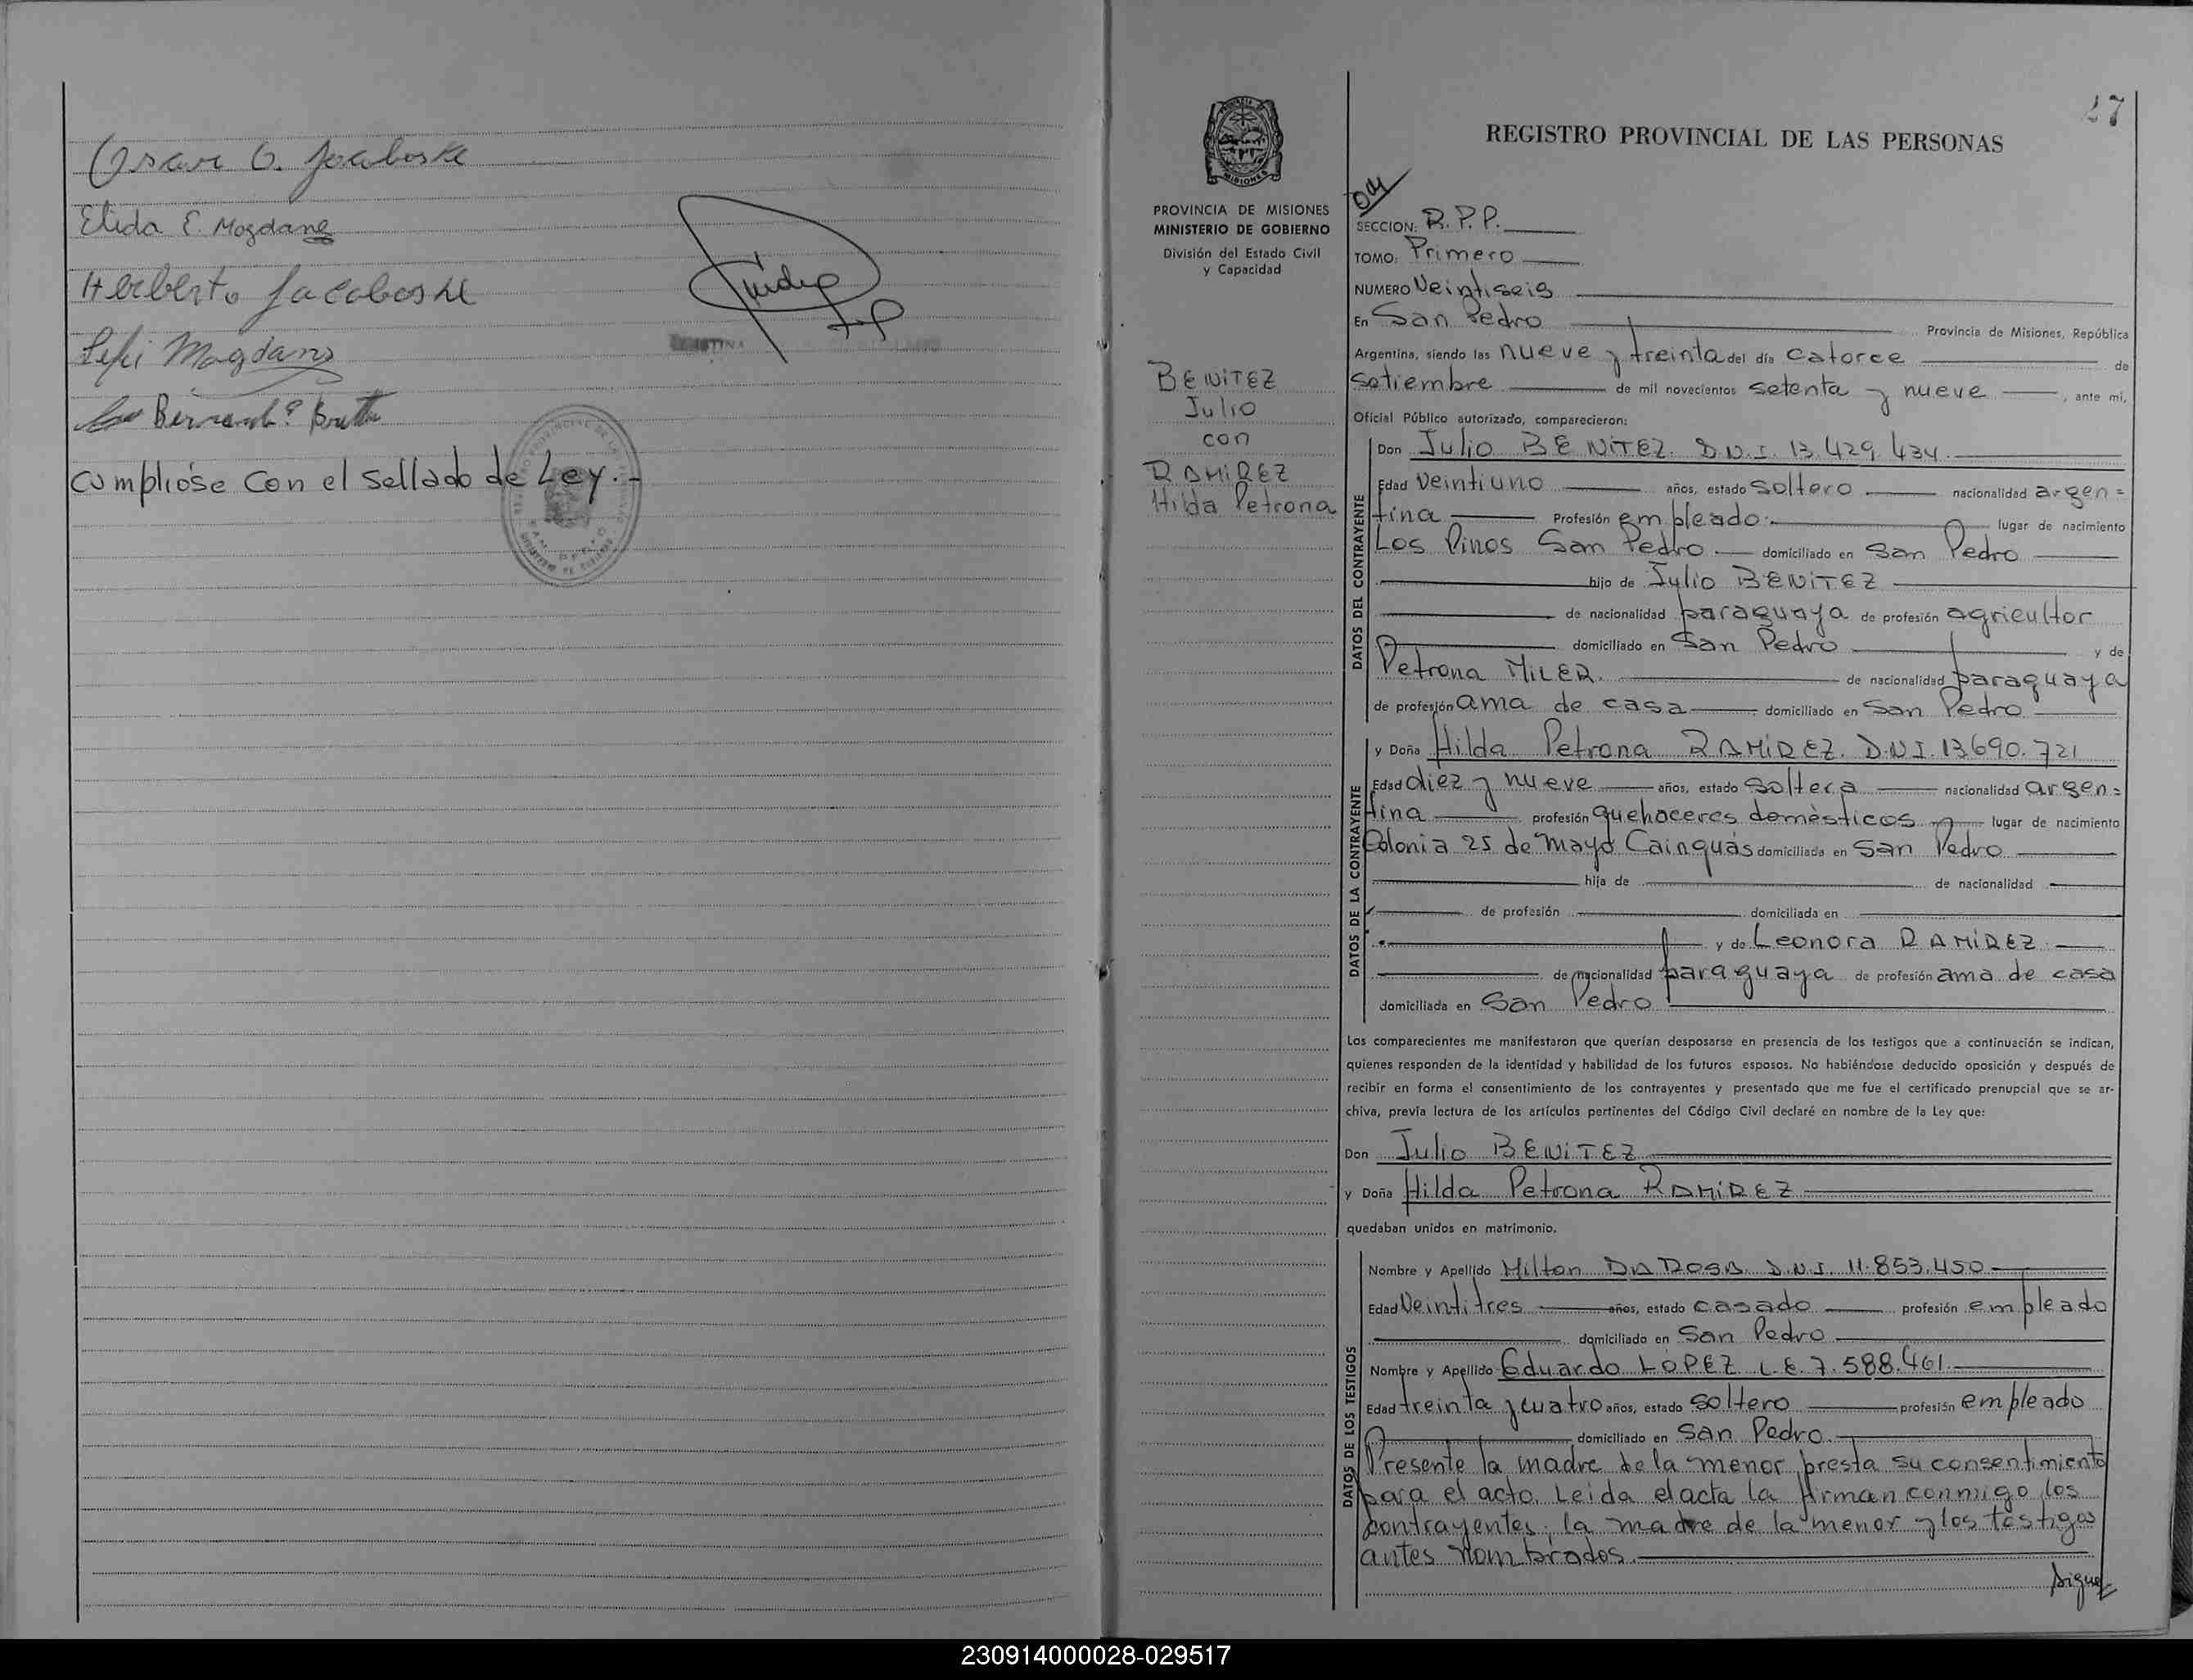 Oscar O. Jacaboske
Elida E. Mogdans
Herberto Jacaboske
Magdans
Cumplióse Con el sellado de Ley.-
27
REGISTRO PROVINCIAL DE LAS PERSONAS
PROVINCIA DE MISIONES
MINISTERIO DE GOBIERNO
División del Estado Civil
y Capacidad
BENITEZ
Julio
con
RAMIREZ
Hilda Petrona
SECCION: R.P.P.
TOMO: Primero
NUMERO Veintiseis
En San Pedro Provincia de Misiones, República
Argentina, siendo las nueve y treinta del día catorce de
Setiembre de mil novecientos setenta y nueve, ante mí,
Oficial Público autorizado, comparecieron:
DATOS DEL CONTRAYENTE
Don Julio BENITEZ. D.N.I. 13.429.434.
Edad Veintiuno años, estado soltero nacionalidad argen=
tina Profesión empleado. lugar de nacimiento
Los Pinos San Pedro domiciliado en San Pedro
hijo de Julio BENITEZ
de nacionalidad paraguaya de profesión agricultor
domiciliado en San Pedro y de
Petrona MILER. de nacionalidad paraguaya
de profesión ama de casa domiciliado en San Pedro
DATOS DE LA CONTRAYENTE
y Doña Hilda Petrona RAMIREZ. D.N.I. 13.690.721
Edad diez y nueve años, estado soltera nacionalidad argen=
tina profesión quehaceres domèsticos lugar de nacimiento
Colonia 25 de Mayo Cainguás domiciliada en San Pedro
hija de de nacionalidad
de profesión domiciliada en
y de Leonora RAMIREZ.
de nacionalidad paraguaya de profesión ama de casa
domiciliada en San Pedro
Los comparecientes me manifestaron que querían desposarse en presencia de los testigos que a continuación se indican,
quienes responden de la identidad y habilidad de los futuros esposos. No habiéndose deducido oposición y después de
recibir en forma el consentimiento de los contrayentes y presentado que me fue el certificado prenupcial que se ar-
chiva, previa lectura de los artículos pertinentes del Código Civil declaré en nombre de la Ley que:
Don Julio BENITEZ
y Doña Hilda Petrona RAMIREZ
quedaban unidos en matrimonio.
DATOS DE LOS TESTIGOS
Nombre y Apellido Milton DA ROSA D.N.I. 11.853.450
Edad Veintitres años, estado casado profesión empleado
domiciliado en San Pedro
Nombre y Apellido Eduardo LOPEZ L.E. 7.588.461.
Edad treinta y cuatro años, estado soltero profesión empleado
domiciliado en San Pedro.
Presente la madre de la menor presta su consentimiento
para el acto. Leida el acta la firman conmigo los
contrayentes, la madre de la menor y los testigos
antes nombrados.
Sigue
230914000028-029517